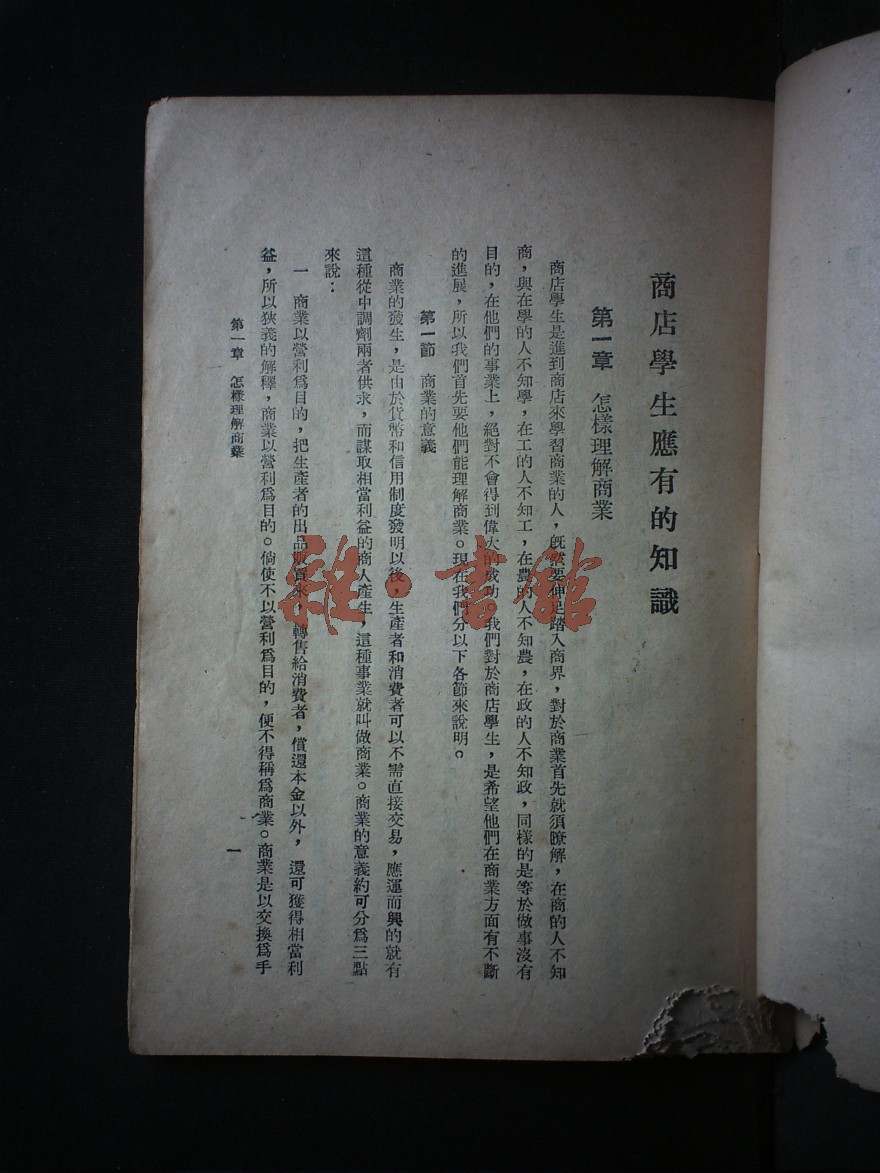 商店學生應有的知識
第一章 怎樣理解商業
商店學生是進到商店來學習商業的人，既然要伸足踏入商界，對於商業首先就須瞭解，在商的人不知
商，與在學的人不知學，在工的人不知工，在農的人不知農，在政的人不知政，同樣的是等於做事沒有
目的，在他們的事業上，絕對不會得到偉大的成功，我們對於商店學生，是希望他們在商業方面有不斷
的進展，所以我們首先要他們能理解商業。現在我們分以下各節來說明。
第一節 商業的意義
商業的發生，是由於貨幣和信用制度發明以後，生產者和消費者可以不需直接交易，應運而興的就有
這種從中調劑兩者供求，而謀取相當利益的商人產生，這種事業就叫做商業。商業的意義約可分爲三點
來說：
一 商業以營利爲目的，把生產者的出品販買來，轉售給消費者，償還本金以外，還可獲得相當利
益，所以狹義的解釋，商業以營利爲目的。倘使不以營利爲目的，便不得稱爲商業。商業是以交換爲手
第一章 怎樣理解商業
一
雜·書館